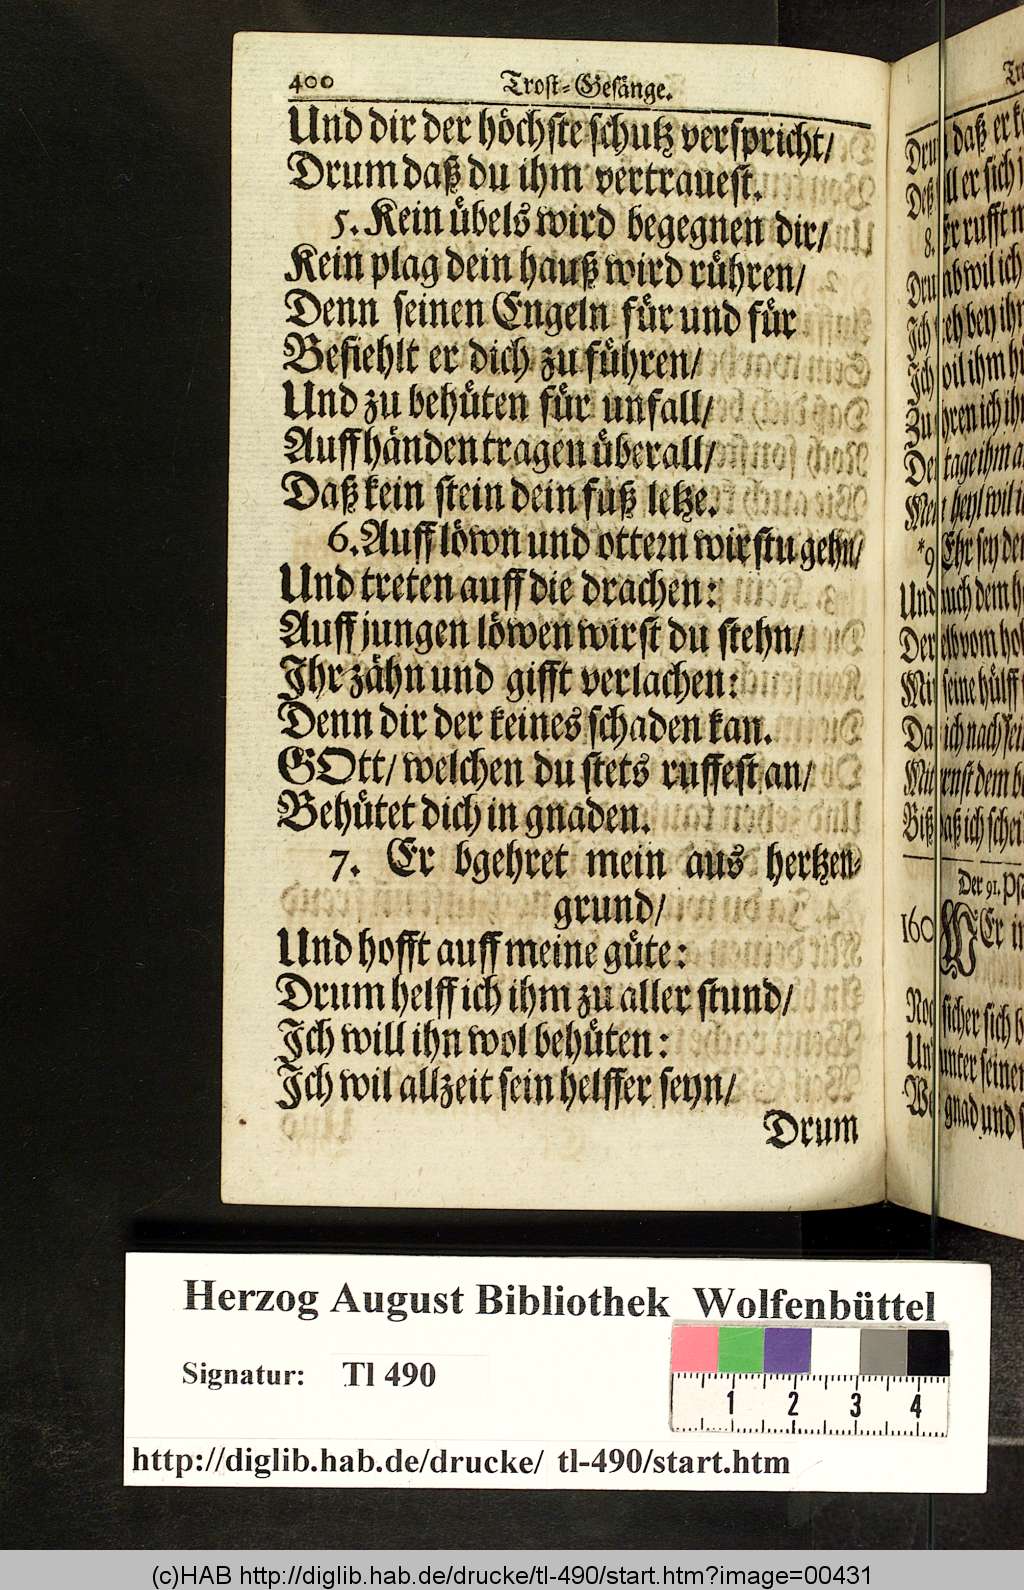 400 Trost-Gesänge.
Und dir der höchste schutz verspricht/
Drum daß du ihm vertrauest.
5. Kein übels wird begegnen dir/
Kein plag dein hauß wird rühren/
Denn seinen Engeln für und für
Befiehlt er dich zu führen/
Und zu behüten für unfall/
Auff händen tragen überall/
Daß kein stein dein fuß letze.
6. Auff löwn und ottern wirstu gehn/
Und treten auff die drachen:
Auff jungen löwen wirst du stehn/
Ihr zähn und gifft verlachen:
Denn dir der keines schaden kan.
GOtt/ welchen du stets ruffest an/
Behütet dich in gnaden.
7. Er bgehret mein aus hertzen-
grund/
Und hofft auff meine güte:
Drum helff ich ihm zu aller stund/
Ich will ihn wol behüten:
Ich wil allzeit sein helffer seyn/
Drum
Herzog August Bibliothek Wolfenbüttel
Signatur: Tl 490
1 2 3 4
http://diglib.hab.de/drucke/ tl-490/start.htm
(c)HAB http://diglib.hab.de/drucke/tl-490/start.htm?image=00431